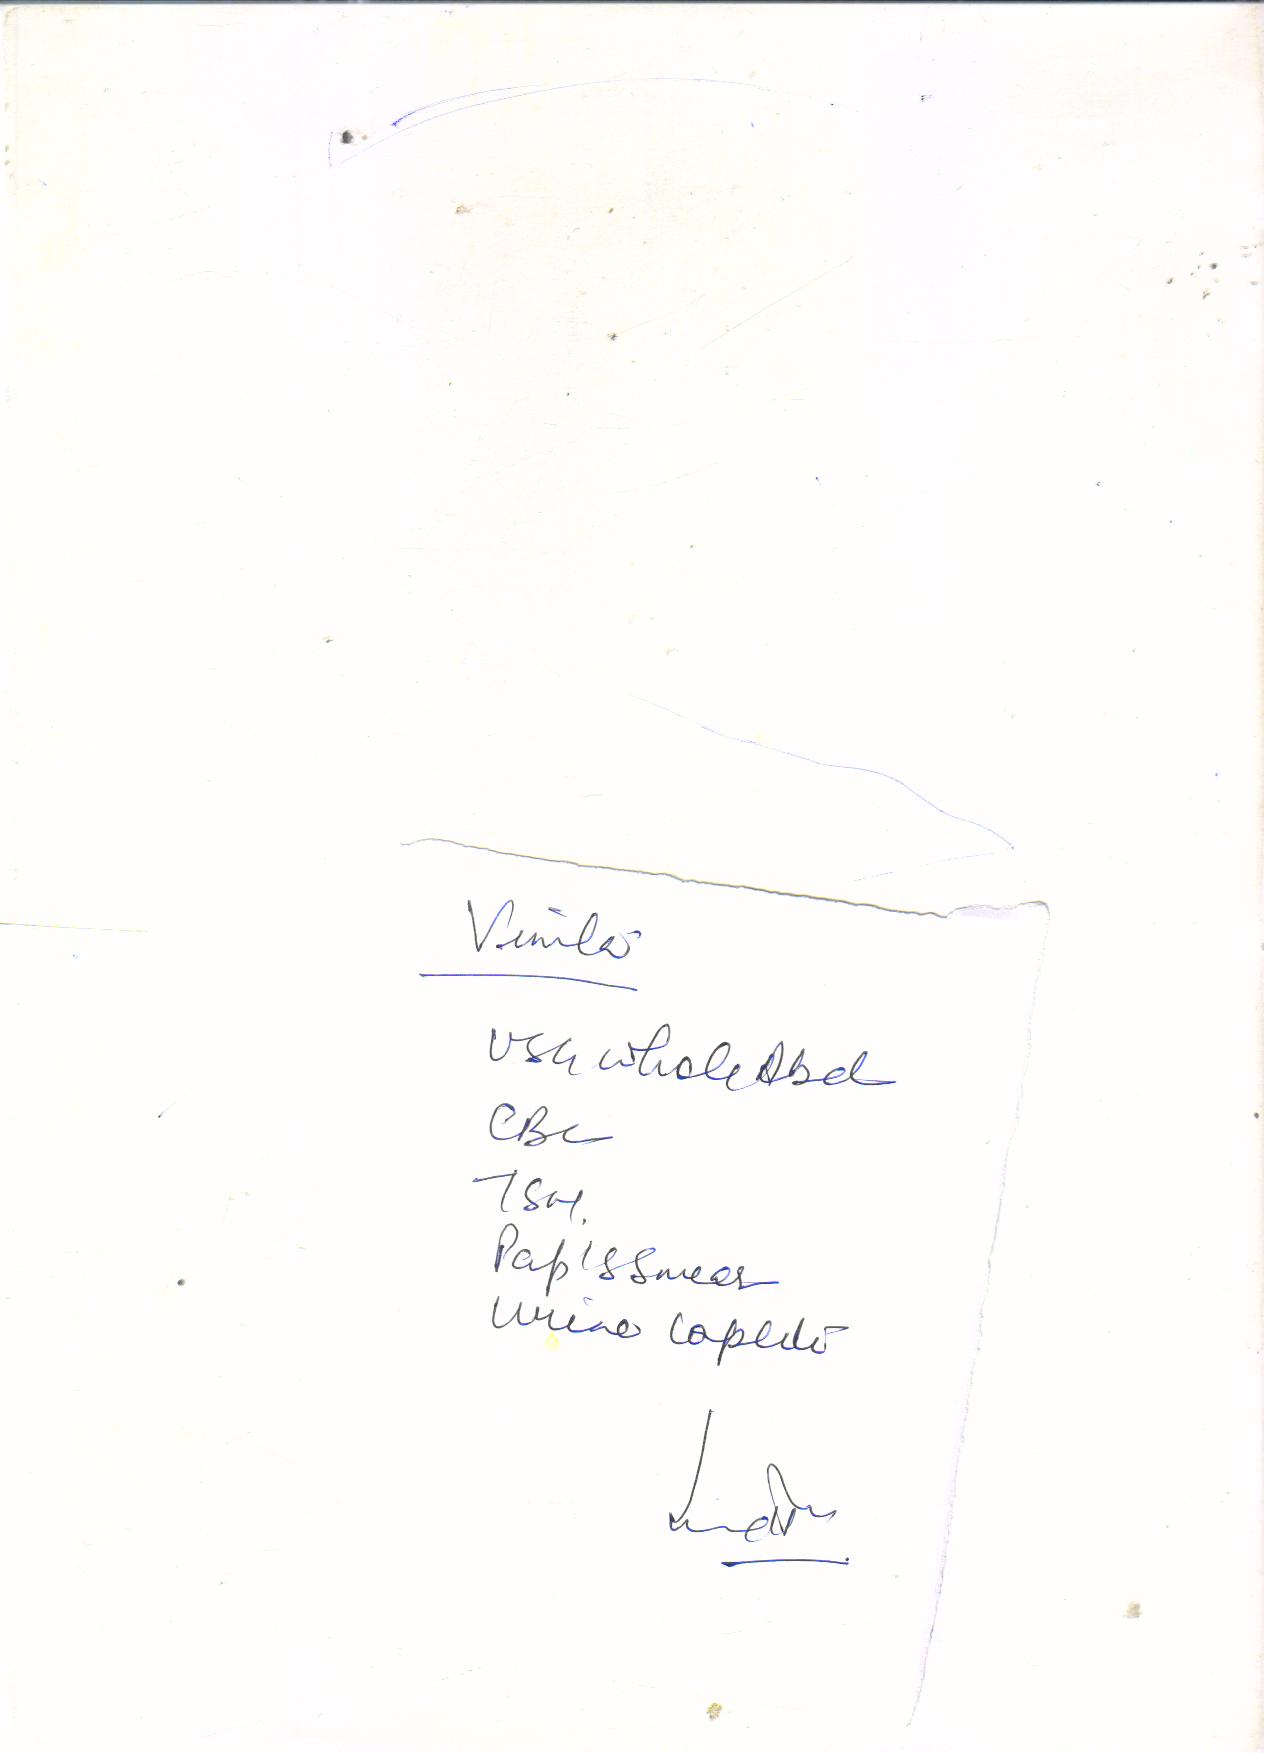 Vimla
USG whole Abd
CBC
TSH.
Pap's Smear
Urine